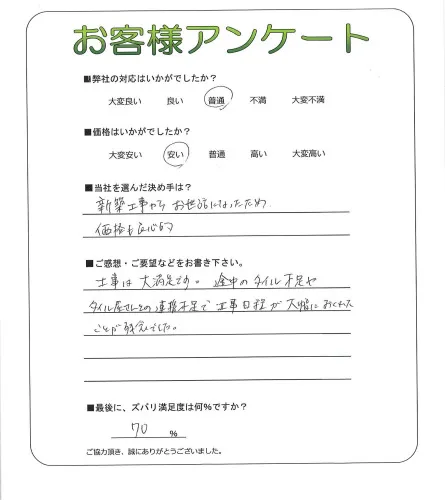 お客様アンケート
■弊社の対応はいかがでしたか？
大変良い 良い 普通 不満 大変不満
■価格はいかがでしたか？
大変安い 安い 普通 高い 大変高い
■当社を選んだ決め手は？
新築工事からお世話になったため
価格も良心的
■ご感想・ご要望などをお書き下さい。
工事は大満足です。途中のタイル不足や
タイル屋さんとの連携不足で工事日程が大幅におくれた
ことが残念でした。
■最後に、ズバリ満足度は何%ですか？
70 %
ご協力頂き、誠にありがとうございました。